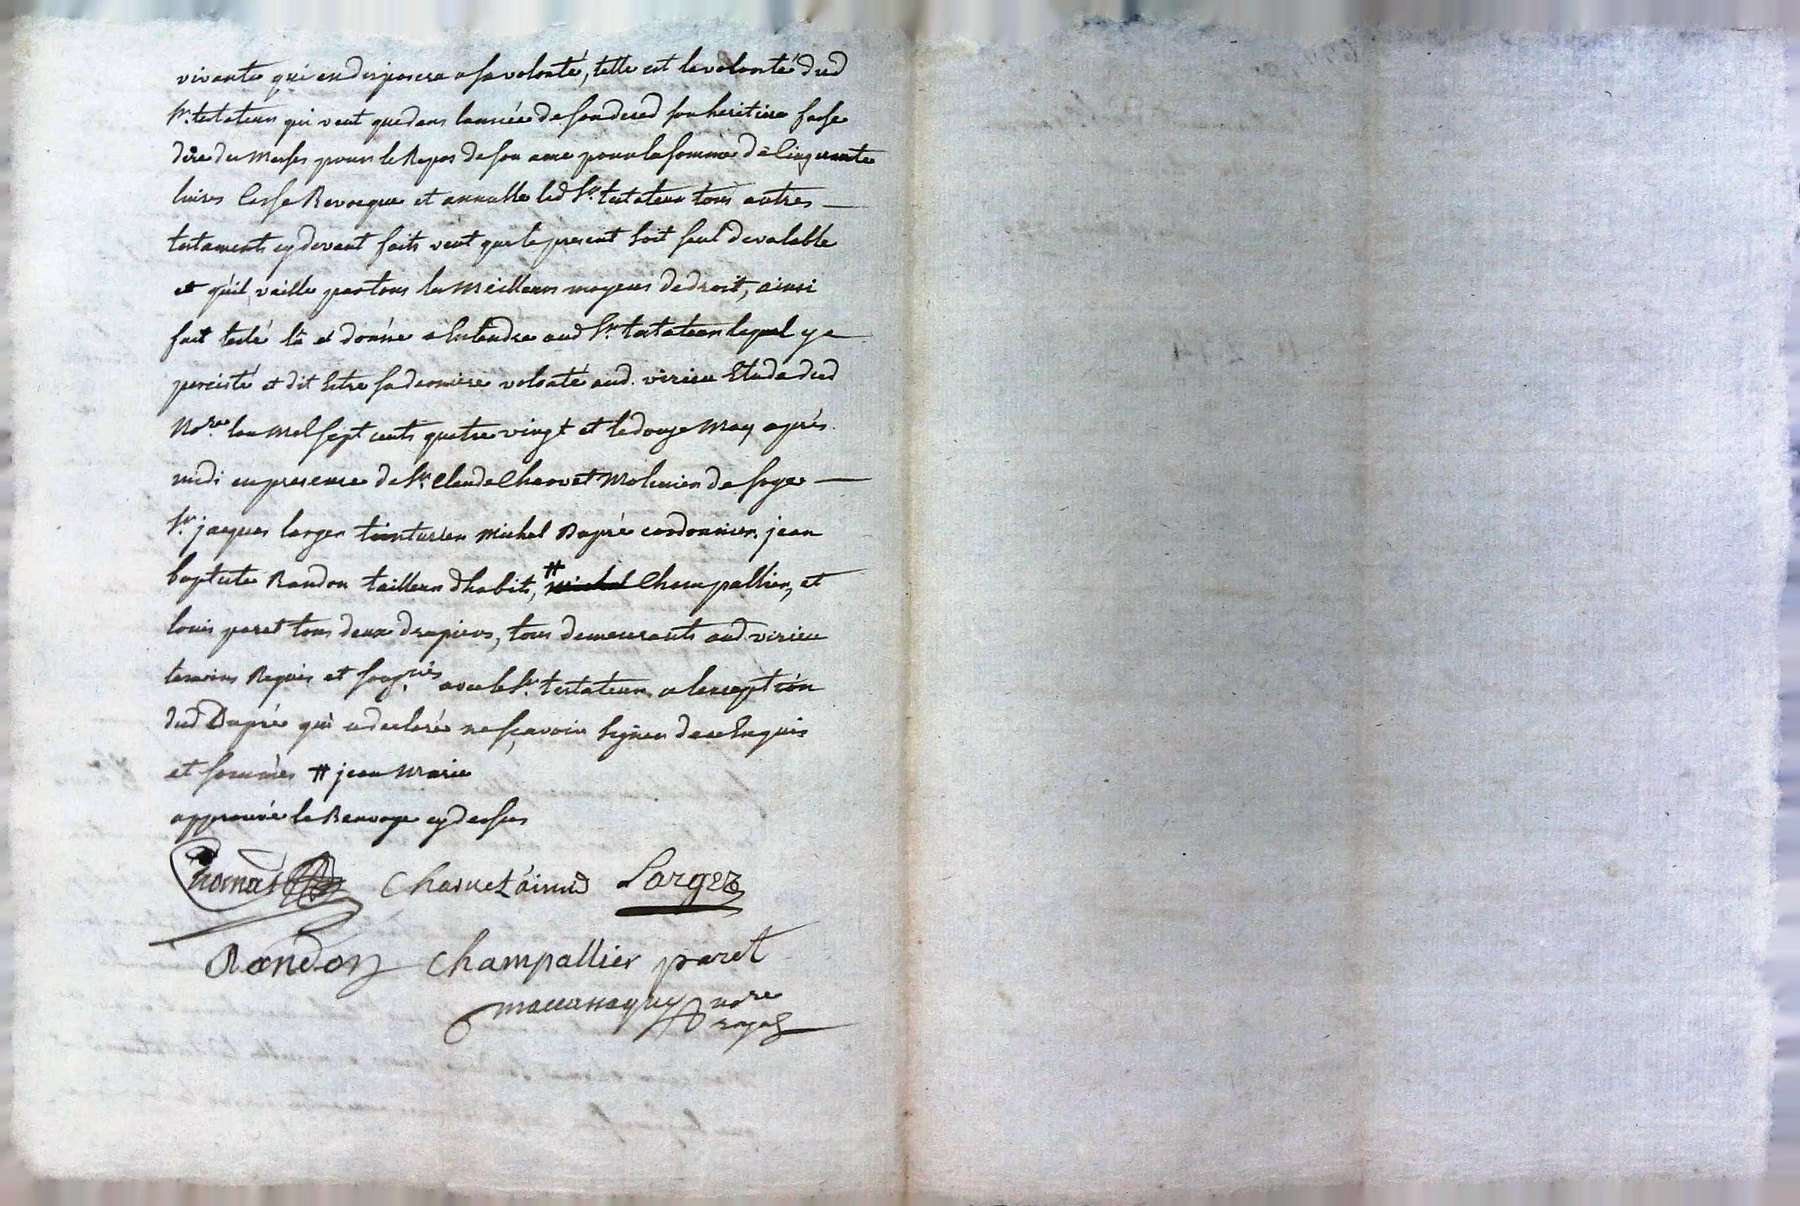 vivante qui en disposera a sa volonté, telle est la volonté dud
Sr. testateur qui veut que dans l'année de son deced son heritiere fasse
dire des Messes pour le Repos de son ame pour la somme de Cinquante
livres Casse Revoque et annulle led Sr. testateur tous autres
testaments cy devant faits veut que le present soit seul de valable
et qu'il vaille par tous les Meilleurs moyens de droit, ainsi
fait testé lû et donné a Entendre aud Sr. testateur lequel y a
percisté et dit Estre sa derniere volonté aud. virieu Etude dud
Nore. lan Mil sept cents quatre vingt et le douze May après
midi en presence de Sr. Claude Charvet Molinier de soye
Sr. jacques larger teinturier Michel Dupré cordonnier jean
baptiste Randon tailleur d'habits, # michel Champallier, et
louis paret tous deux drapiers, tous demeurants aud. virieu
temoins Requis et soug.nés avec le Sr. testateur a lexception
dud Dupré qui a declaré ne sçavoir Signer de ce Enquis
et sommés # jean Marie
approuvé le Renvoye cy dessus
Thomas Charvet ainné Larger
Randon Champallier paret
nore
royal